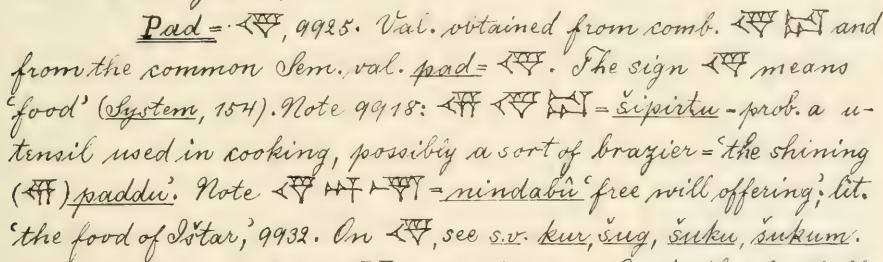 Pad = 𒉻, 9925. Val. obtained from comb. 𒉻 𒁺 and
from the common Sem. val. pad = 𒉻. The sign 𒉻 means
'food' (System, 154). Note 9918: 𒉻 = šipirtu - prob. a u-
tensil used in cooking, possibly a sort of brazier = 'the shining
( ) paddu'. Note 𒉻 𒀭 𒈹 = nindabû 'free will offering'; lit.
'the food of Ištar,' 9932. On 𒉻, see s.v. kur, šug, šuku, šukum.